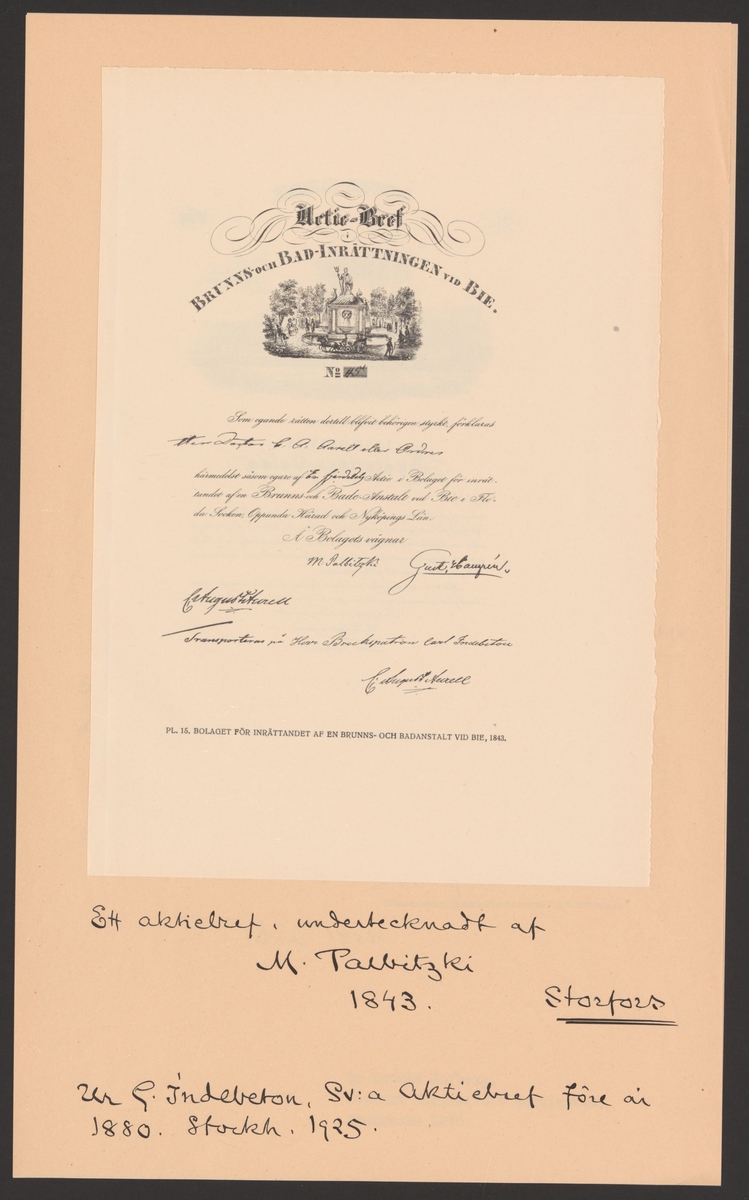 Actie-Bref
i
BRUNNS- OCH BAD-INRÄTTNINGEN VID BIE.
No
Som egande rätten dertill blifvit behörigen styrkt, förklaras
Herr Doctor E. A. Aurell eller Ordres
härmedelst såsom egare af En fjerdedels Actie i Bolaget för inrät-
tandet af en Brunns- och Bade-Anstalt vid Bie i Flo-
da Socken, Oppunda Härad och Nyköpings Län.
Å Bolagets vägnar
M Palbitzki Gust.
E August Aurell
Transporteras på Herr Brukspatron Carl Indebetou
E. August Aurell
PL. 15. BOLAGET FÖR INRÄTTANDET AF EN BRUNNS- OCH BADANSTALT VID BIE, 1843.
Ett aktiebref, undertecknadt af
M. Palbitzki
1843.
Storfors
Ur G. Indebetou, Sv:a Aktiebref före år
1880. Stockh. 1925.